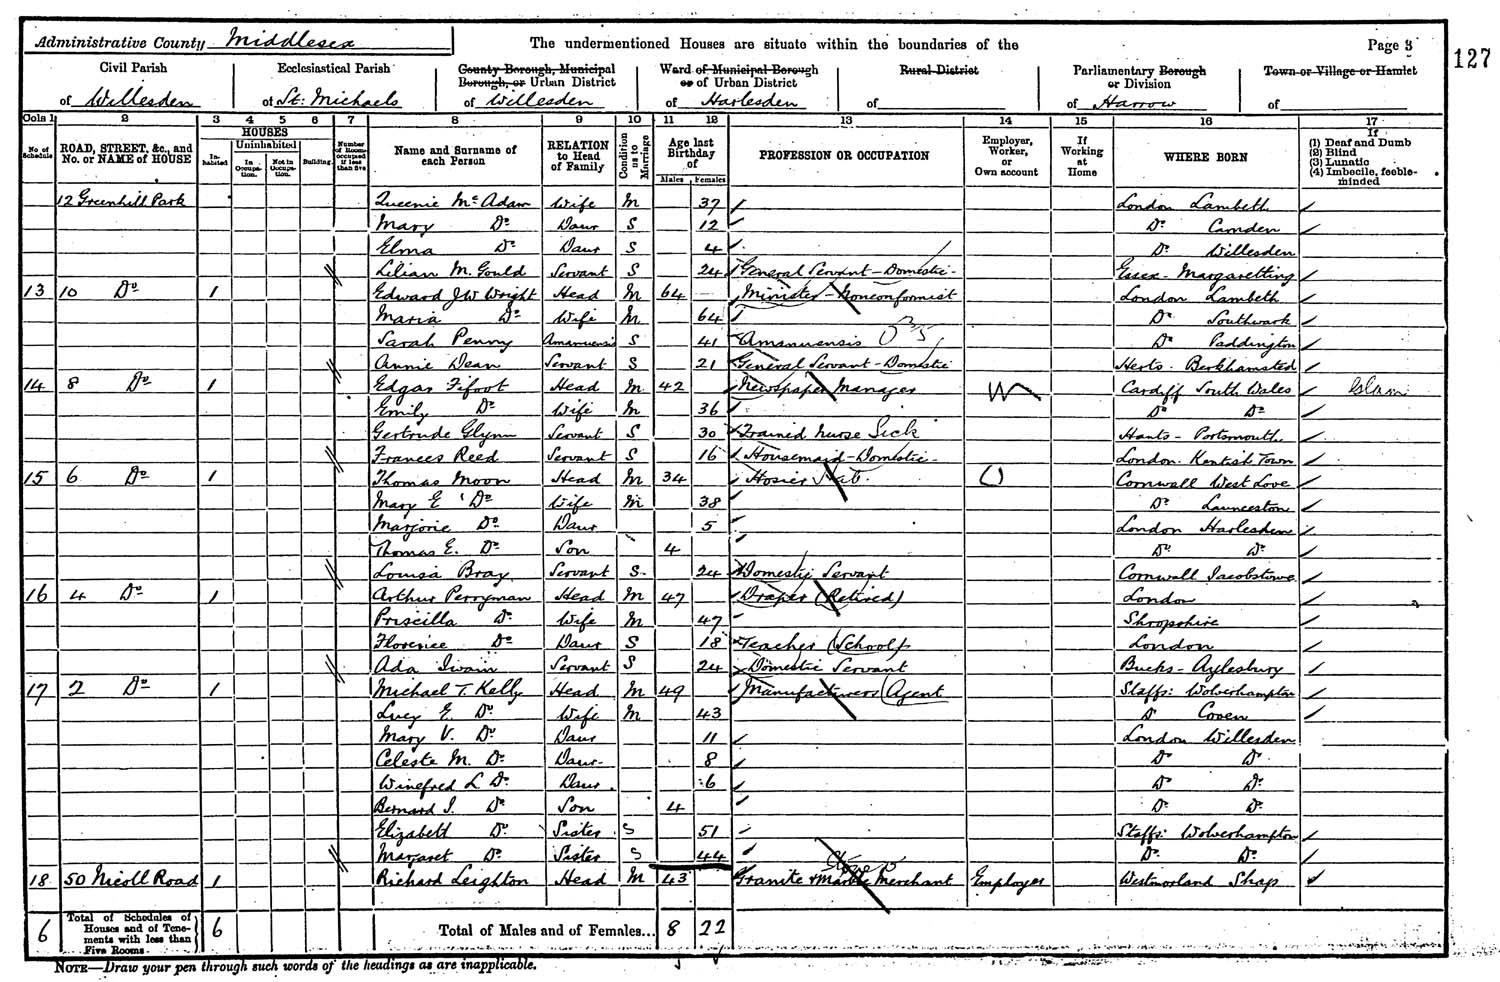 Administrative County Middlesex The undermentioned Houses are situate within the boundaries of the Page 3
127
Civil Parish of Willesden
Ecclesiastical Parish of St: Michaels
County Borough, Municipal Borough, or Urban District of Willesden
Ward of Municipal Borough or of Urban District of Harlesden
Rural District of
Parliamentary Borough or Division of Harrow
Town or Village or Hamlet of
Cols 1 2 3 4 5 6 7 8 9 10 11 12 13 14 15 16 17
No. of Schedule
ROAD, STREET, &c., and No. or NAME of HOUSE
HOUSES
Inhabited
Uninhabited
In Occupation.
Not in Occupation.
Building.
Number of Rooms occupied if less than five
Name and Surname of each Person
RELATION to Head of Family
Condition as to Marriage
Age last Birthday of
Males Females
PROFESSION OR OCCUPATION
Employer, Worker, or Own account
If Working at Home
WHERE BORN
If
(1) Deaf and Dumb
(2) Blind
(3) Lunatic
(4) Imbecile, feeble-minded
12 Greenhill Park Queenie McAdam Wife M 37 London Lambeth
Mary Do Daur S 12 Do Camden
Elma Do Daur S 4 Do Willesden
Lilian M. Gould Servant S 24 General Servant - Domestic - Essex - Margaretting
13 10 Do 1 Edward J W Wright Head M 64 Minister - Nonconformist London Lambeth
Maria Do Wife M 64 Do Southwark
Sarah Penny Amanuensis S 41 Amanuensis Do Paddington
Annie Dean Servant S 21 General Servant - Domestic Herts. Berkhamsted
14 8 Do 1 Edgar Fifoot Head M 42 Newspaper Manager W Cardiff South Wales
Emily Do Wife M 36 Do Do
Gertrude Glynn Servant S 30 Trained Nurse Sick Hants - Portsmouth
Frances Reed Servant S 16 Housemaid - Domestic - London. Kentish Town
15 6 Do 1 Thomas Moon Head M 34 Hosier Cornwall West Love
Mary E Do Wife M 38 Do Launceston
Marjorie Do Daur 5 London Harlesden
Thomas E. Do Son 4 Do Do
Louisa Bray Servant S. 24 Domestic Servant Cornwall Jacobstowe
16 4 Do 1 Arthur Perryman Head M 47 Draper (Retired) London
Priscilla Do Wife M 47 Shropshire
Florence Do Daur S 18 Teacher (School) London
Ada Swain Servant S 24 Domestic Servant Bucks - Aylesbury
17 2 Do 1 Michael T. Kelly Head M 49 Manufacturers Agent Staffs: Wolverhampton
Lucy E. Do Wife M 43 Do Coven
Mary V. Do Daur 11 London Willesden
Celeste M. Do Daur 8 Do Do
Winefred L Do Daur 6 Do Do
Bernard J. Do Son 4 Do Do
Elizabeth Do Sister S 51 Staffs: Wolverhampton
Margaret Do Sister S 44 Do Do
18 50 Nicoll Road 1 Richard Leighton Head M 43 Granite & Marble Merchant Employer Westmorland Shap
6 Total of Schedules of Houses and of Tenements with less than Five Rooms 6 Total of Males and of Females... 8 22
NOTE—Draw your pen through such words of the headings as are inapplicable.